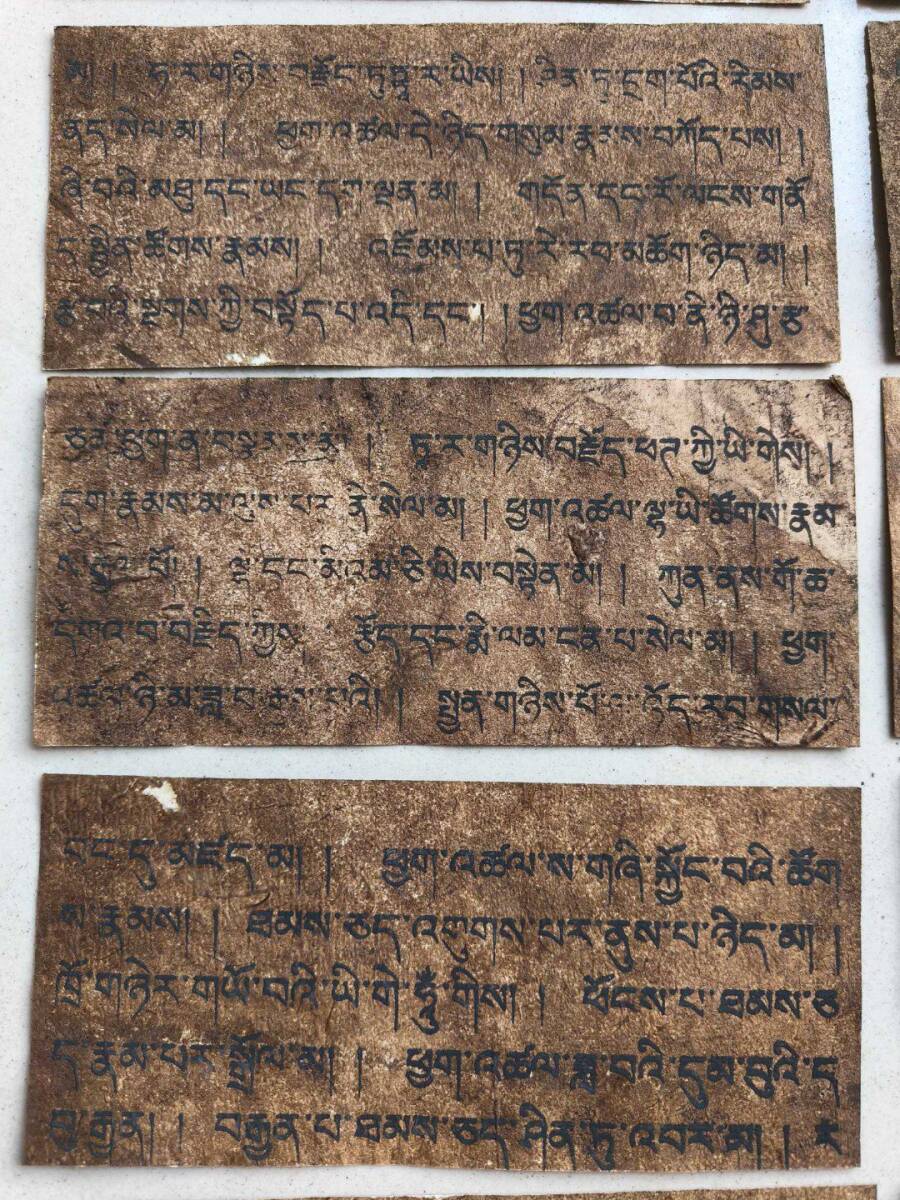 མ། ། ཧ་ར་གཉིས་བརྗོད་ཏུཏྟཱ་ར་ཡིས། ། ཤིན་ཏུ་དྲག་པོའི་རིམས་
ནད་སེལ་མ། ། ཕྱག་འཚལ་དེ་ཉིད་གསུམ་རྣམས་བཀོད་པས། །
ཞི་བའི་མཐུ་དང་ཡང་དག་ལྡན་མ། ། གདོན་དང་རོ་ལངས་གནོ
ད་སྦྱིན་ཚོགས་རྣམས། ། འཇོམས་པ་ཏུ་རེ་རབ་མཆོག་ཉིད་མ། །
རྩ་བའི་སྔགས་ཀྱི་བསྟོད་པ་འདི་དང་། ། ཕྱག་འཚལ་བ་ནི་ཉི་ཤུ་རྩ
ཕྱག་ན་ ། ། ཏཱ་ར་གཉིས་བརྗོད་ཕཊ་ཀྱི་ཡི་གེས། །
དུག་རྣམས་མ་ལུས་པར་ནི་སེལ་མ། ། ཕྱག་འཚལ་ལྷ་ཡི་ཚོགས་རྣམ
ས་རྒྱལ་པོ། ། ལྷ་དང་མིའམ་ཅི་ཡིས་བསྟེན་མ། ། ཀུན་ནས་གོ་ཆ་
དགའ་བ་བརྗིད་ཀྱིས། རྩོད་དང་རྨི་ལམ་ངན་པ་སེལ་མ། ། ཕྱག་
འཚལ་ཉི་མ་ཟླ་བ་རྒྱས་པའི། ། སྤྱན་གཉིས་པོ་ལ་འོད་རབ་གསལ་
དབང་དུ་མཛད་མ། ། ཕྱག་འཚལ་ས་གཞི་སྐྱོང་བའི་ཚོག
ས་རྣམས། ། ཐམས་ཅད་འགུགས་པར་ནུས་པ་ཉིད་མ། །
ཁྲོ་གཉེར་གཡོ་བའི་ཡི་གེ་ཧཱུྃ་གིས། ། ཕོངས་པ་ཐམས་ཅ
ད་རྣམ་པར་སྒྲོལ་མ། ། ཕྱག་འཚལ་ཟླ་བའི་དུམ་བུའི་ད
བུ་རྒྱན། ། བརྒྱན་པ་ཐམས་ཅད་ཤིན་ཏུ་འབར་མ། ། ར